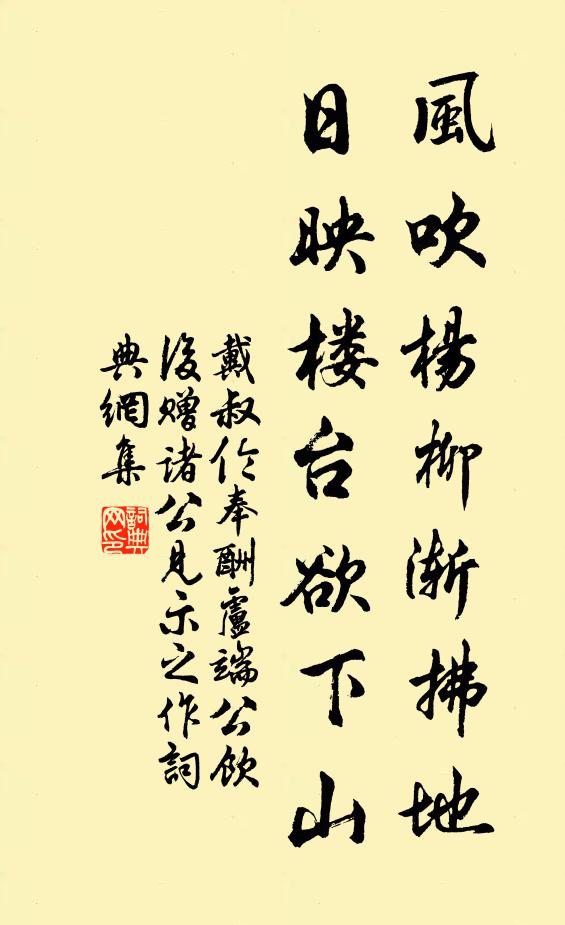 風吹楊柳渐拂地
日映楼台欲下山
戴叔伦奉酬盧端公飲
後贈诸公見示之作詞
典網集
詞典网印